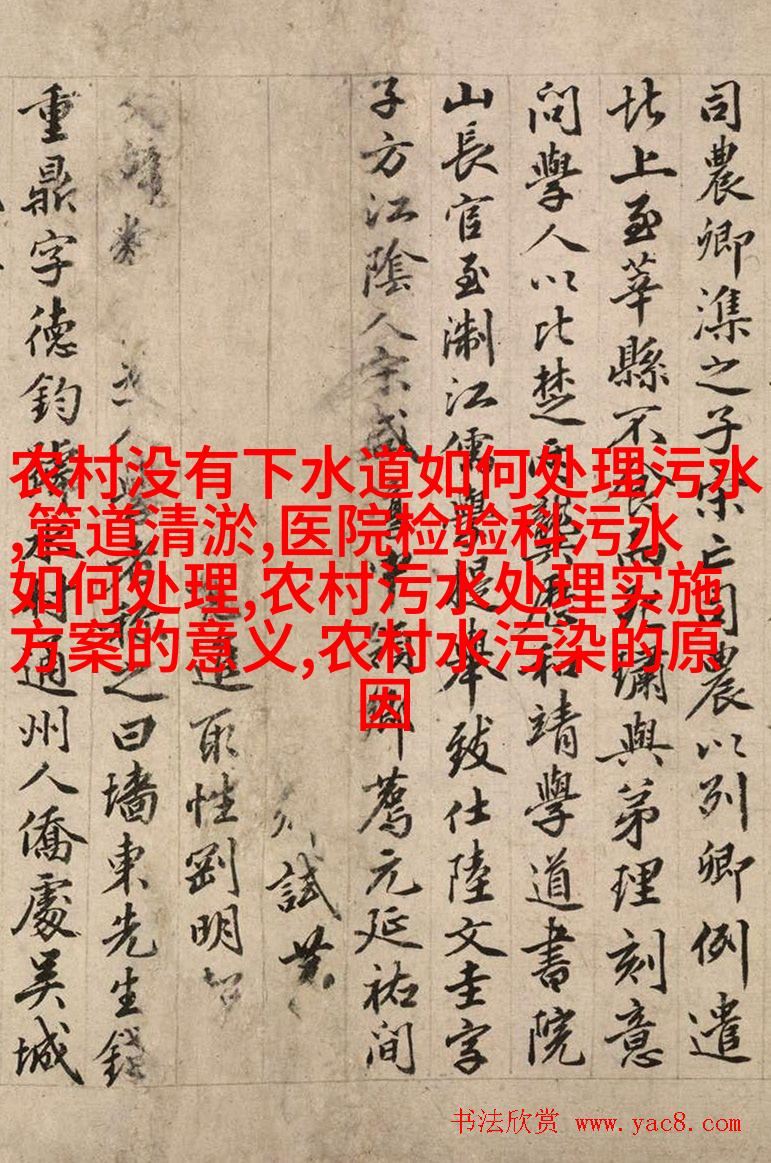 司農卿潗之子宋亡司農以列卿例遣
北上至莘縣不食而死璛與弟理刻意
問學人以比楚两龔歷和靖學道書院
山長官至淛江儒學提舉致仕陸文圭字
子方江陰人宋咸淳中領鄉薦元延祐間
試
性剛明
人之曰墻東先生錢
重鼎字德鈞通州人僑處吴城
农村没有下水道如何处理污水
,管道清淤,医院检验科污水
如何处理,农村污水处理实施
方案的意义,农村水污染的原
因
书法欣赏 www.yac8.com